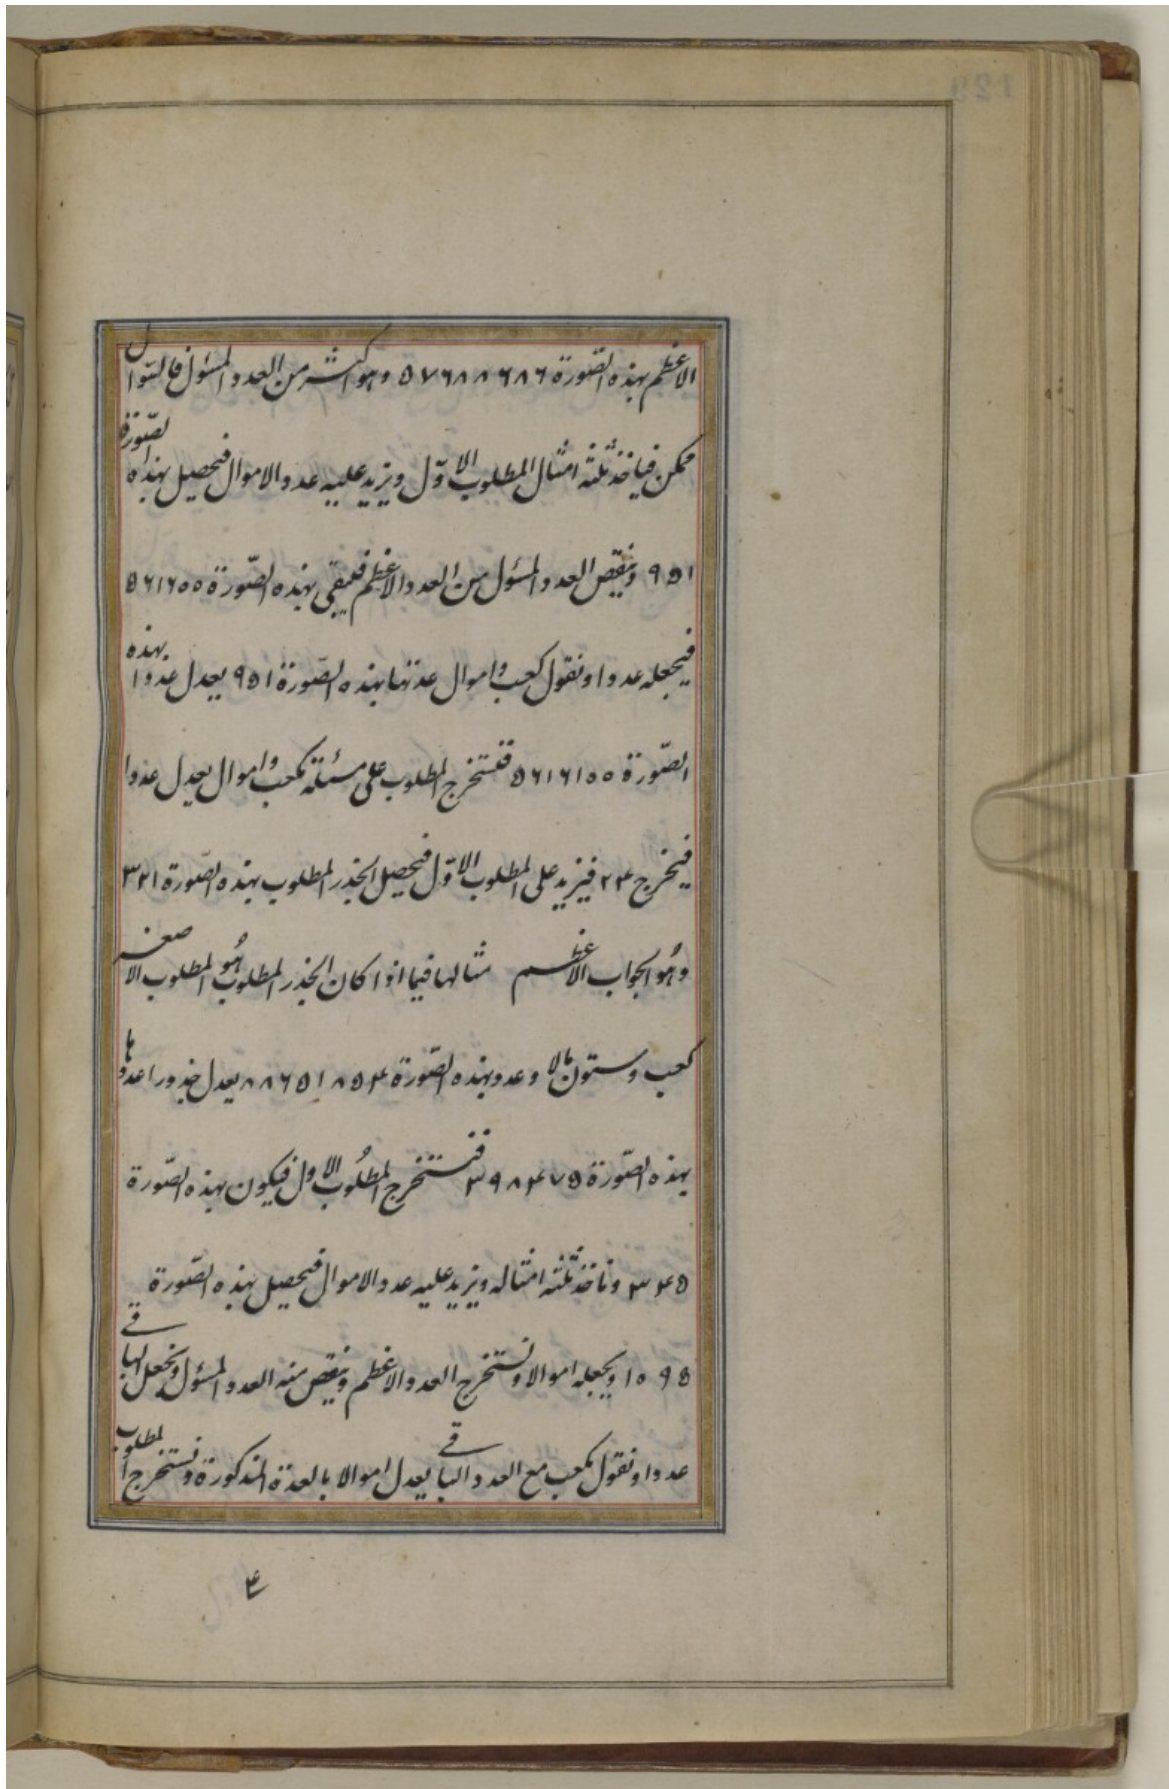 الاعظم بهذه الصّورة ٥٧٦٨٨٦٨٦ وهو اكثر من العدد المسئول فالسّوال
ممكن فياخذ ثلثة امثال المطلوب الاوّل ويزيد عليه عدد الاموال فيحصل بهذه الصّورة
٩٥١ وينقص العدد المسئول من العدد الاعظم فيبقى بهذه الصّورة ٥٦١٦٠٠
فيجعله عددا ونقول كعب واموال عدتها بهذه الصّورة ٩٥١ يعدل عددا بهذه
الصّورة ٥٦١٦٠٠ فنستخرج المطلوب على مسئلة كعب واموال يعدل عددا
فيخرج ٢٤ فيزيد على المطلوب الاوّل فيحصل الجذر المطلوب بهذه الصّورة ٣٢١
وهُو الجواب الاعظم مثالها فيما اذا كان الجذر المطلوب هُو المطلوب الاصغر
كعب وستون مالا وعدد بهذه الصّورة ٨٨٦٥١٨٥٤ يعدل جذورا عددها
بهذه الصّورة ٣٩٨٤٧٥ فنستخرج المطلُوب الاول فيكون بهذه الصّورة
٣٤٥ وناخذ ثلثة امثاله ويزيد عليه عدد الاموال فيحصل بهذه الصّورة
١٠٩٥ ويجعله اموالا ونستخرج العدد الاعظم وينقص منه العدد المسئول ونجعل الباقى
عددا ونقول كعب مع العدد الباقى يعدل اموالا بالعدة المذكورة ونستخرج المطلوب